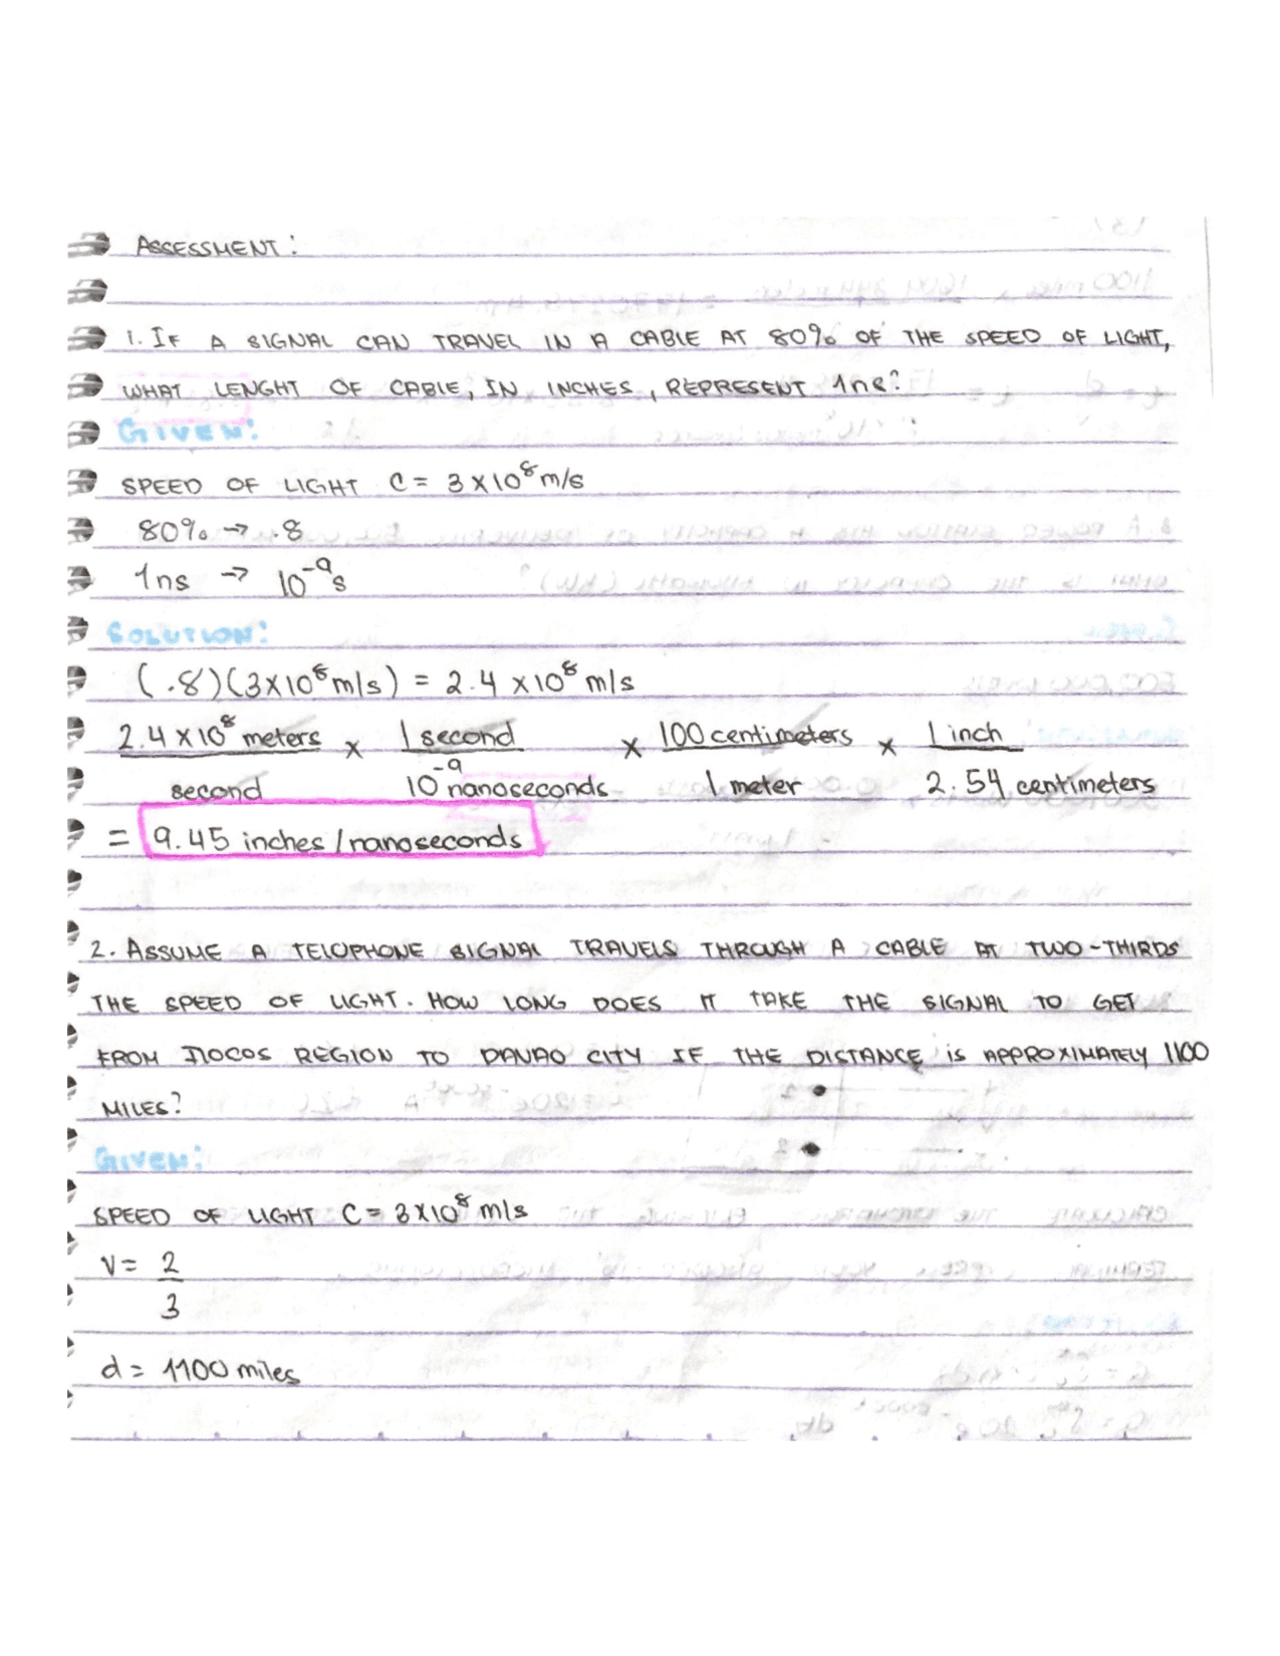 ASSESSMENT:
1. IF A SIGNAL CAN TRAVEL IN A CABLE AT 80% OF THE SPEED OF LIGHT,
WHAT LENGHT OF CABLE, IN INCHES, REPRESENT 1ns?
GIVEN:
SPEED OF LIGHT C = 3x10⁸ m/s
80% → .8
1ns → 10⁻⁹s
SOLUTION:
(.8)(3x10⁸ m/s) = 2.4 x10⁸ m/s
2.4 x10⁸ meters x 1 second x 100 centimeters x 1 inch
second 10⁻⁹ nanoseconds 1 meter 2.54 centimeters
= 9.45 inches / nanoseconds
2. ASSUME A TELOPHONE SIGNAL TRAVELS THROUGH A CABLE AT TWO-THIRDS
THE SPEED OF LIGHT. HOW LONG DOES IT TAKE THE SIGNAL TO GET
FROM ILOCOS REGION TO DANAO CITY IF THE DISTANCE is APPROXIMATELY 1100
MILES?
GIVEN:
SPEED OF LIGHT C = 3x10⁸ m/s
V = 2
3
d = 1100 miles